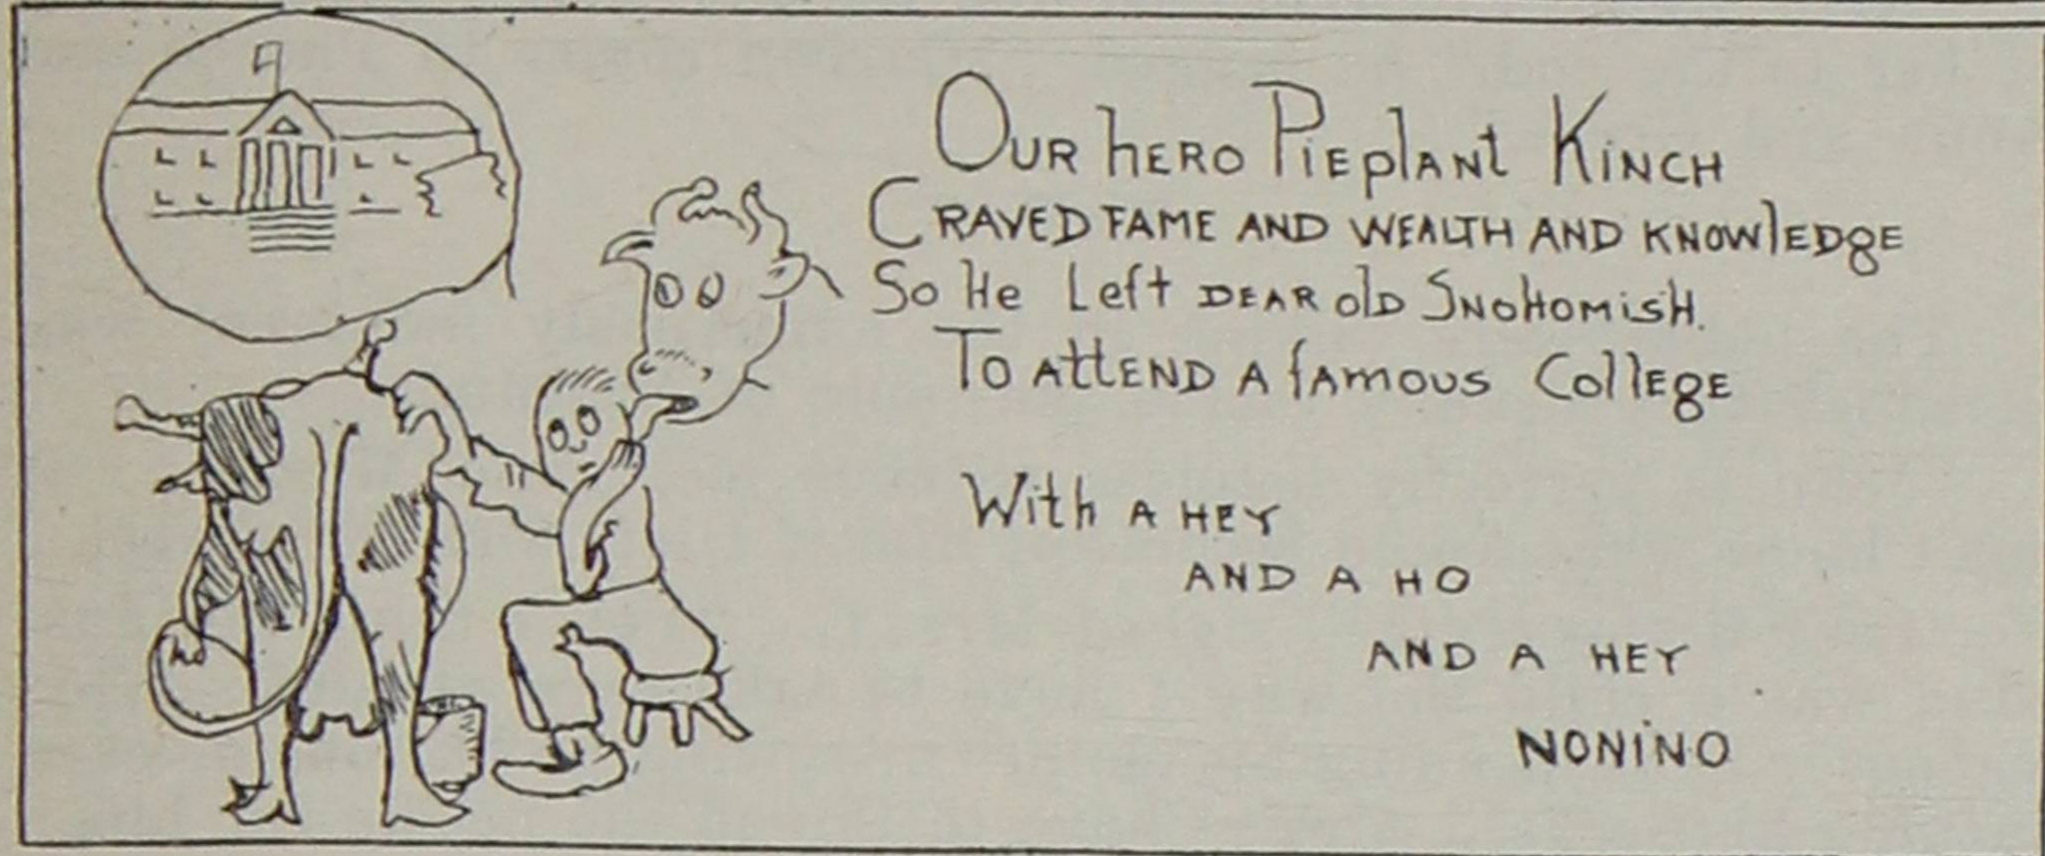 Our hero Pieplant Kinch
Craved fame and wealth and knowledge
So He Left dear old Snohomish.
To attend a famous College
With a hey
and a ho
and a hey
nonino